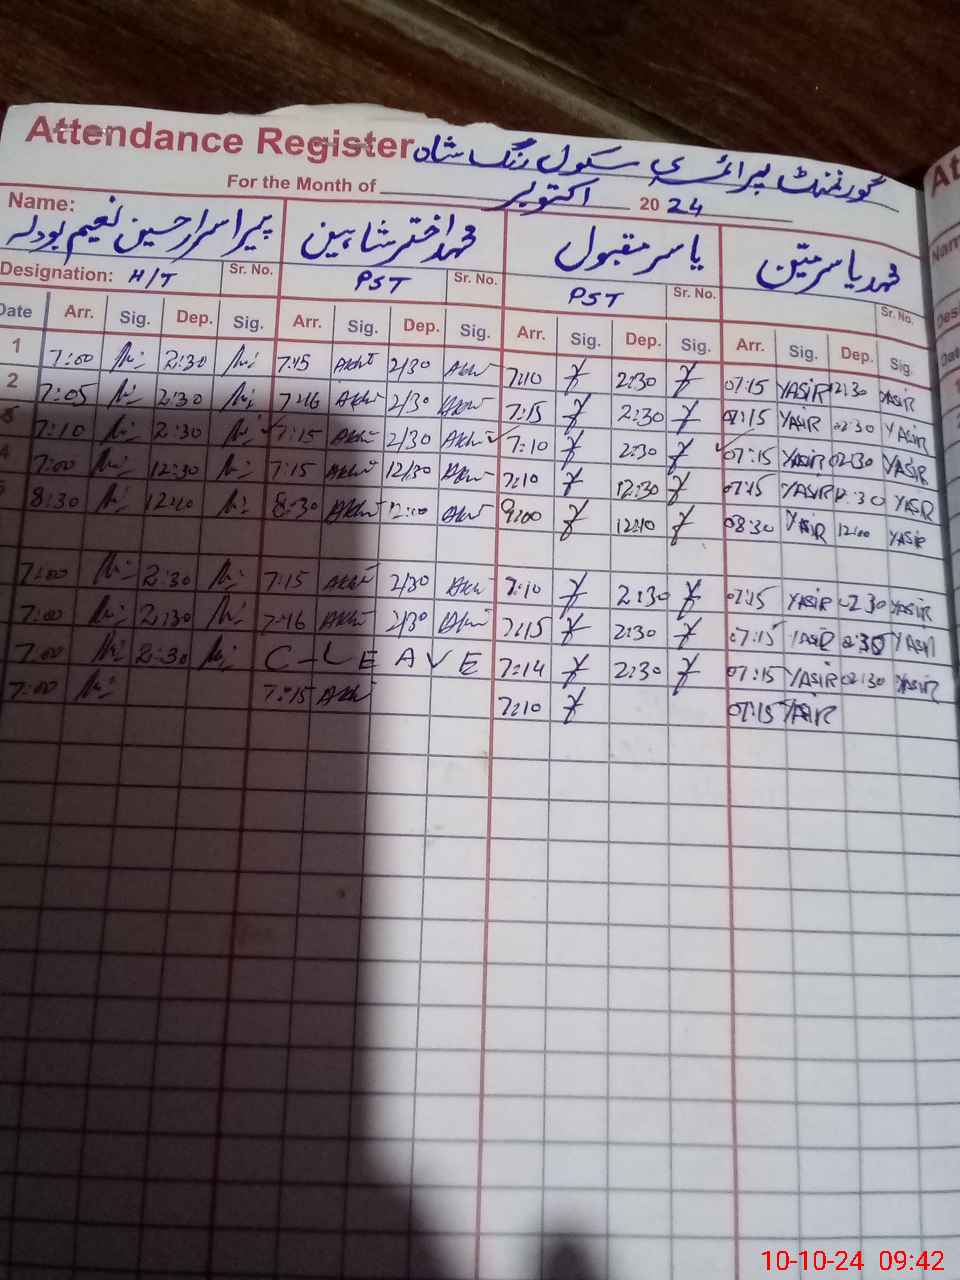 Attendance Register گورنمنٹ پرائمری سکول رنگ شاہ
For the Month of اکتوبر 2024
Name: پیر اسرار حسین نعیم بودلہ محمد اختر شاہین یاسر مقبول محمد یاسر متین
Designation: H/T Sr. No. PST Sr. No. PST Sr. No. Sr. No.
Date Arr. Sig. Dep. Sig. Arr. Sig. Dep. Sig. Arr. Sig. Dep. Sig. Arr. Sig. Dep. Sig.
1 7:00 2:30 7:15 2/30 7:10 2:30 07:15 YASIR 02:30 YASIR
2 7:05 2:30 7:16 2/30 7:15 2:30 07:15 YASIR 02:30 YASIR
3 7:10 2:30 7:15 2/30 7:10 2:30 07:15 YASIR 02:30 YASIR
4 7:00 12:30 7:15 12/30 7:10 12:30 07:15 YASIR 12:30 YASIR
5 8:30 12:10 8:30 12:10 9:00 12:10 08:30 YASIR 12:00 YASIR
7:00 2:30 7:15 2/30 7:10 2:30 07:15 YASIR 02:30 YASIR
7:00 2:30 7:16 2/30 7:15 2:30 07:15 YASIR 02:30 YASIR
7:00 2:30 C-LEAVE 7:14 2:30 07:15 YASIR 02:30 YASIR
7:00 7:15 7:10 07:15 YASIR
10-10-24 09:42